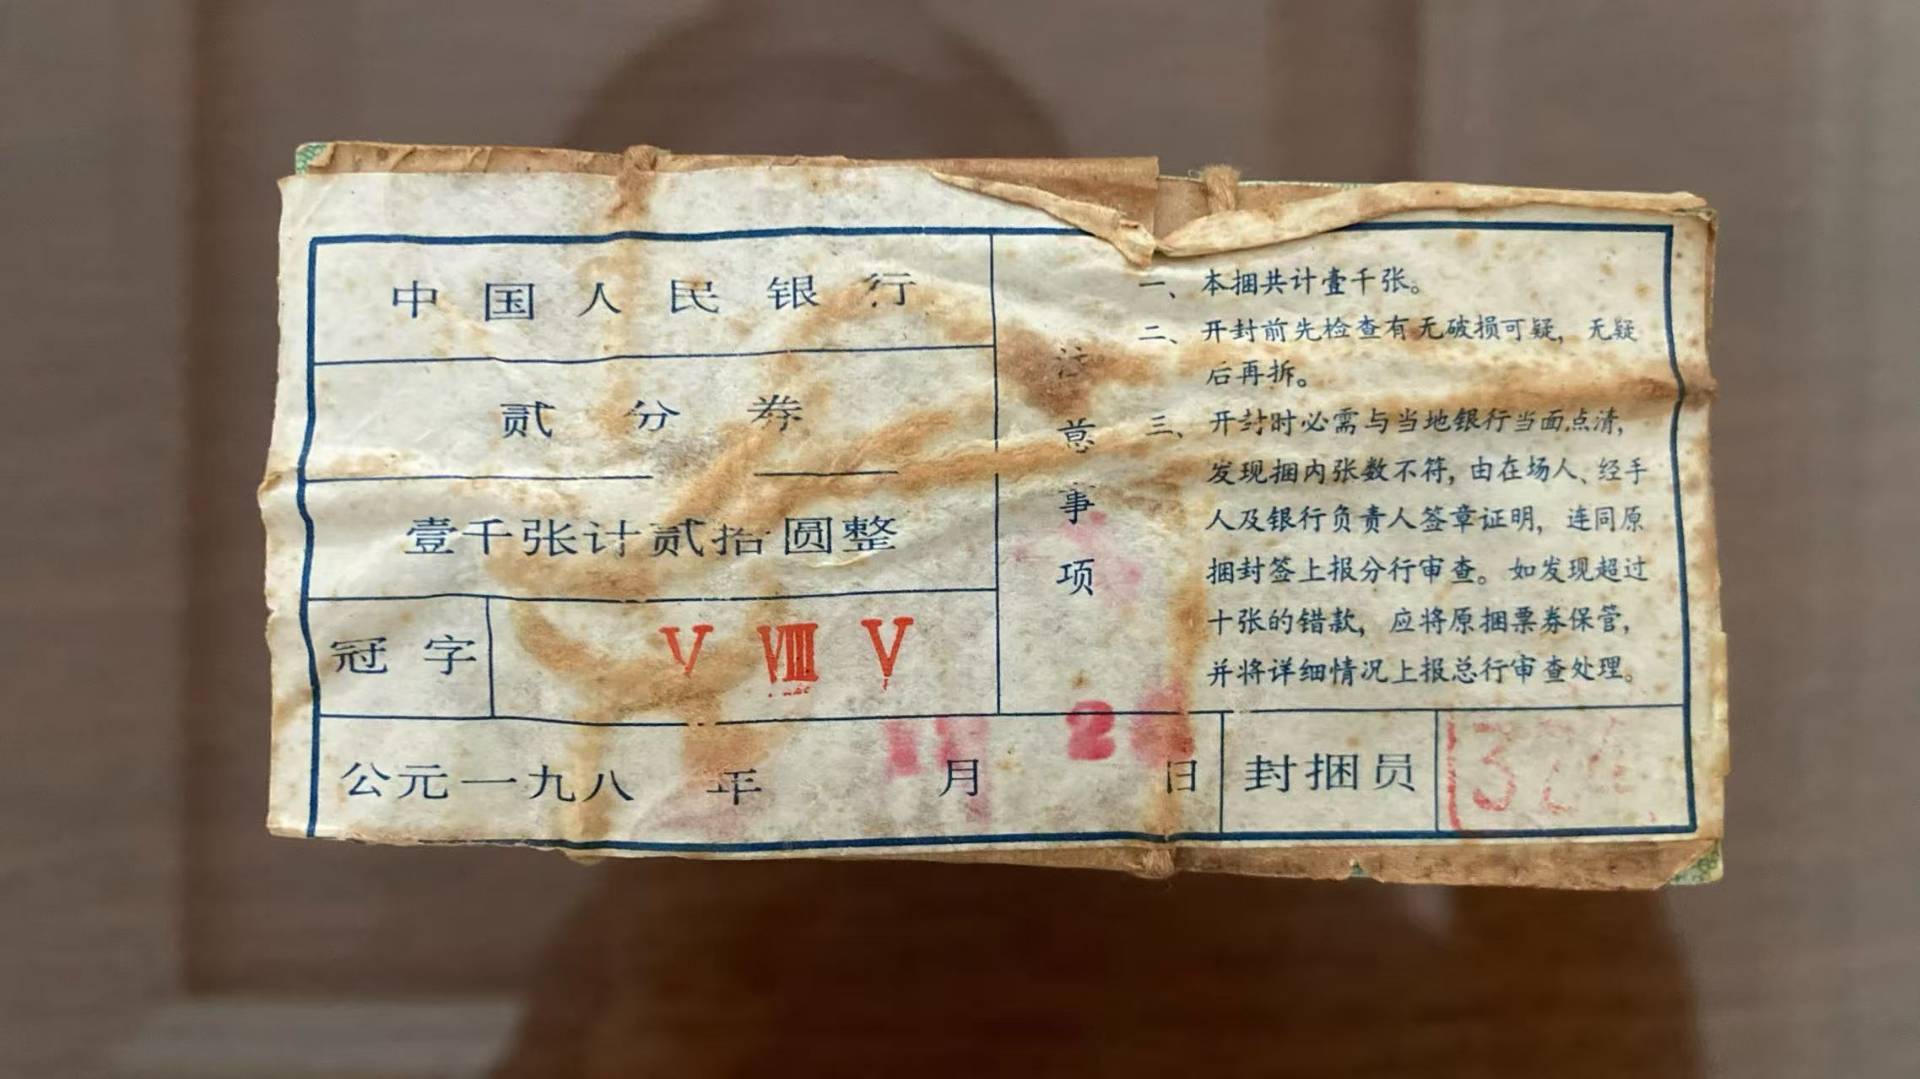 中国人民银行
贰分券
壹千张计贰拾圆整
冠字 V VIII V
注意事项
一、本捆共计壹千张。
二、开封前先检查有无破损可疑，无疑
后再拆。
三、开封时必需与当地银行当面点清，
发现捆内张数不符，由在场人、经手
人及银行负责人签章证明，连同原
捆封签上报分行审查。如发现超过
十张的错款，应将原捆票券保管，
并将详细情况上报总行审查处理。
公元一九八 年 月 2 日
封捆员